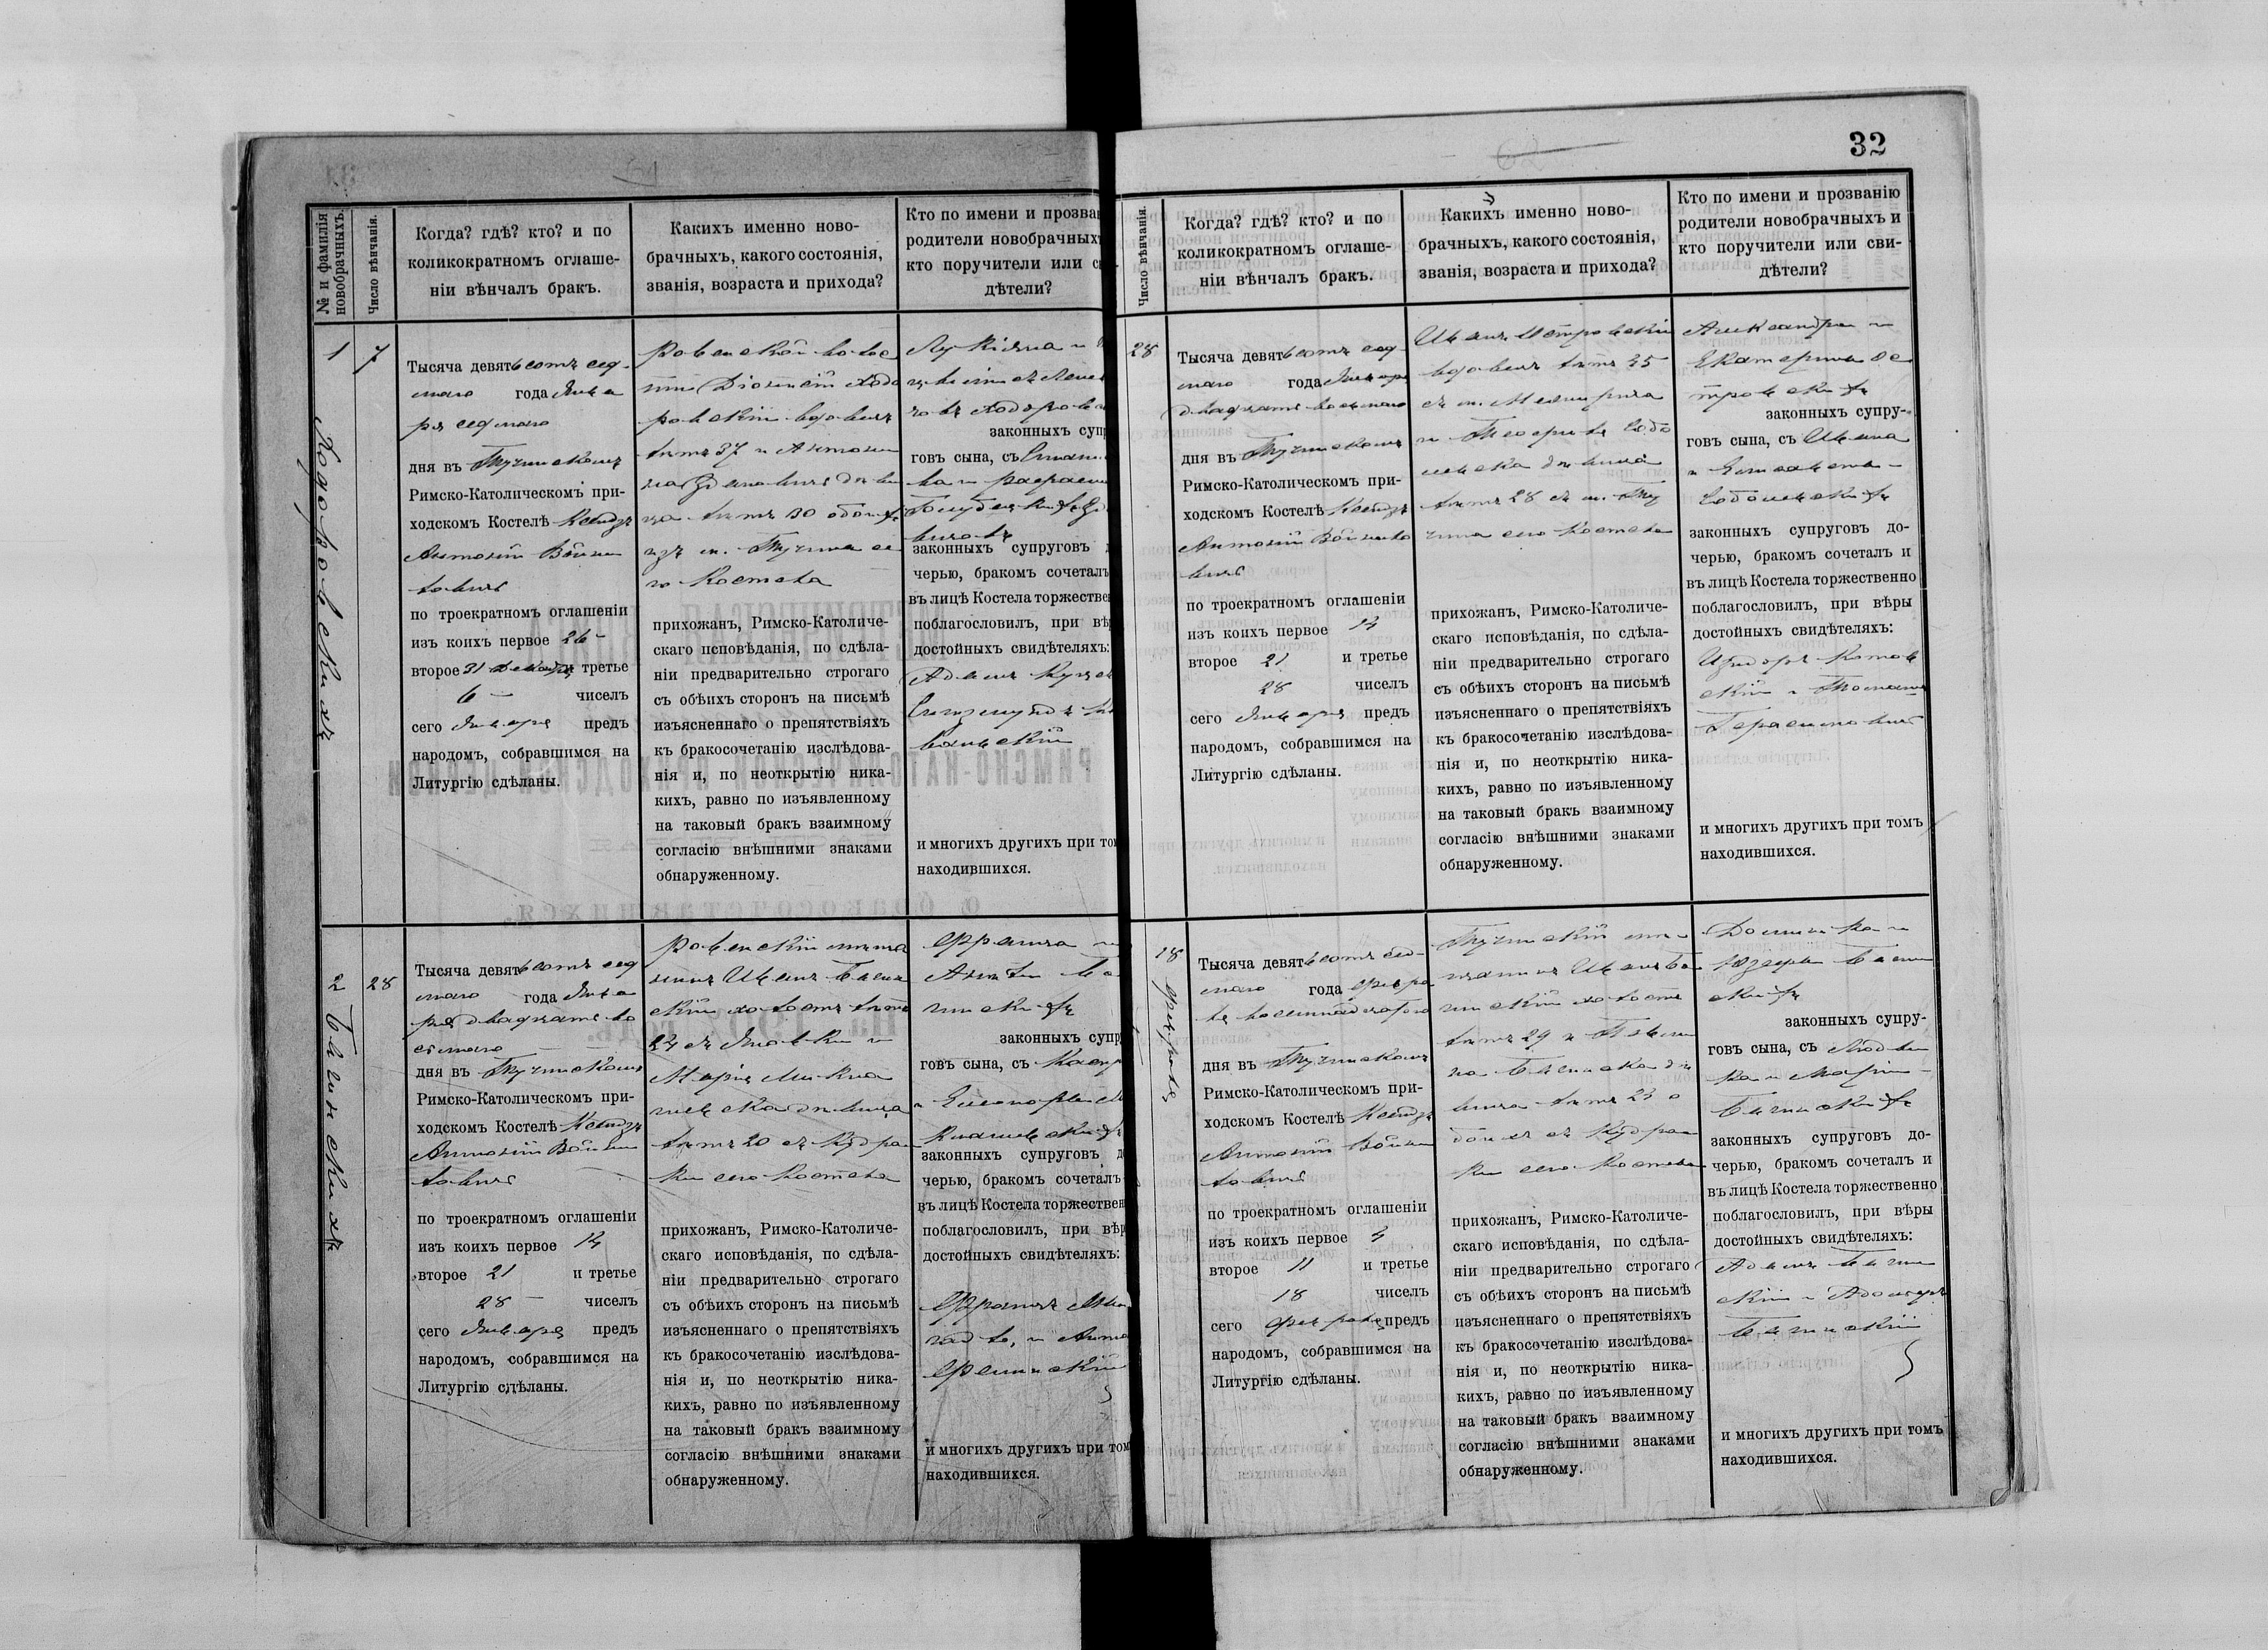 32
№ и фамилія новобрачныхъ.
Число вѣнчанія.
Когда? гдѣ? кто? и по
коликократномъ оглаше-
ніи вѣнчалъ бракъ.
Какихъ именно ново-
брачныхъ, какого состоянія,
званія, возраста и прихода?
Кто по имени и прозва
родители новобрачных
кто поручители или с
дѣтели?
1
7
Ходоровскихъ
Тысяча девятьсотъ сед-
маго года Янва
ря седмаго
дня въ Тучинскомъ
Римско-Католическомъ при-
ходскомъ Костелѣ Ксендзъ
Антоній Войни
ловичъ
по троекратномъ оглашеніи
изъ коихъ первое 26
второе 31 Декабря третье
6 — чиселъ
сего Января предъ
народомъ, собравшимся на
Литургію сдѣланы.
Ровенской волос
ти Діонисій Ходо
ровскій вдовецъ
лѣтъ 37 и Антони
на дѣви
ца лѣтъ 30 обоихъ
изъ м. Тучина се
го Костела
прихожанъ, Римско-Католиче-
скаго исповѣданія, по сдѣла-
ніи предварительно строгаго
съ обѣихъ сторонъ на письмѣ
изъясненнаго о препятствіяхъ
къ бракосочетанію изслѣдова-
нія и, по неоткрытію ника-
кихъ, равно по изъявленному
на таковый бракъ взаимному
согласію внѣшними знаками
обнаруженному.
Лукіяна и
Ходоров
законныхъ суп
говъ сына, съ
законныхъ супруговъ д
черью, бракомъ сочеталъ
въ лицѣ Костела торжестве
поблагословилъ, при вѣ
достойныхъ свидѣтеляхъ:
Адамъ
и многихъ другихъ при то
находившихся.
2
28
Багинскихъ
Тысяча девятьсотъ сед
маго года Янва
ря двадцать во
сьмаго
дня въ Тучинскомъ
Римско-Католическомъ при-
ходскомъ Костелѣ Ксендзъ
Антоній Войни
ловичъ
по троекратномъ оглашеніи
изъ коихъ первое 14
второе 21 и третье
28 — чиселъ
сего Января предъ
народомъ, собравшимся на
Литургію сдѣланы.
Ровенскій мѣща
нинъ Иванъ Багин
скій холостъ лѣтъ
24 съ Яновки и
Марія
дѣвица
лѣтъ 20 съ Кудран
ки сего Костела
прихожанъ, Римско-Католиче-
скаго исповѣданія, по сдѣла-
ніи предварительно строгаго
съ обѣихъ сторонъ на письмѣ
изъясненнаго о препятствіяхъ
къ бракосочетанію изслѣдова-
нія и, по неоткрытію ника-
кихъ, равно по изъявленному
на таковый бракъ взаимному
согласію внѣшними знаками
обнаруженному.
Франца и
Ба
гинскихъ
законныхъ супр
говъ сына, съ
законныхъ супруговъ д
черью, бракомъ сочеталъ
въ лицѣ Костела торжествен
поблагословилъ, при вѣр
достойныхъ свидѣтеляхъ:
Францъ
и многихъ другихъ при том
находившихся.
Число вѣнчанія.
Когда? гдѣ? кто? и по
коликократномъ оглаше-
ніи вѣнчалъ бракъ.
Какихъ именно ново-
брачныхъ, какого состоянія,
званія, возраста и прихода?
Кто по имени и прозванію
родители новобрачныхъ и
кто поручители или сви-
дѣтели?
28
Тысяча девятьсотъ сед-
маго года Января
двадцать восьмаго
дня въ Тучинскомъ
Римско-Католическомъ при-
ходскомъ Костелѣ Ксендзъ
Антоній Войнило
вичъ
по троекратномъ оглашеніи
изъ коихъ первое 14
второе 21 и третье
28 чиселъ
сего Января предъ
народомъ, собравшимся на
Литургію сдѣланы.
Иванъ
вдовецъ лѣтъ 35
съ м. Межирича
и Собо
левска дѣвица
лѣтъ 28 съ м. Ту
чина сего Костела
прихожанъ, Римско-Католиче-
скаго исповѣданія, по сдѣла-
ніи предварительно строгаго
съ обѣихъ сторонъ на письмѣ
изъясненнаго о препятствіяхъ
къ бракосочетанію изслѣдова-
нія и, по неоткрытію ника-
кихъ, равно по изъявленному
на таковый бракъ взаимному
согласію внѣшними знаками
обнаруженному.
Александра и
Екатерины Ос
тровскихъ
законныхъ супру-
говъ сына, съ Ивана
и Елизаветы
Соболевскихъ
законныхъ супруговъ до-
черью, бракомъ сочеталъ и
въ лицѣ Костела торжественно
поблагословилъ, при вѣры
достойныхъ свидѣтеляхъ:
Изидоръ Котов
скій и
Герасимовичъ
и многихъ другихъ при томъ
находившихся.
18 Февраля
Тысяча девятьсотъ сед-
маго года Февра
ля восемнадцатаго
дня въ Тучинскомъ
Римско-Католическомъ при-
ходскомъ Костелѣ Ксендзъ
Антоній Войни
ловичъ
по троекратномъ оглашеніи
изъ коихъ первое 4
второе 11 и третье
18 чиселъ
сего Февраля предъ
народомъ, собравшимся на
Литургію сдѣланы.
Тучинскій мѣ
щанинъ Иванъ Ба
гинскій холостъ
лѣтъ 29 и
Багинска дѣ
вица лѣтъ 23 о
боихъ съ Кудран
ки сего Костела
прихожанъ, Римско-Католиче-
скаго исповѣданія, по сдѣла-
ніи предварительно строгаго
съ обѣихъ сторонъ на письмѣ
изъясненнаго о препятствіяхъ
къ бракосочетанію изслѣдова-
нія и, по неоткрытію ника-
кихъ, равно по изъявленному
на таковый бракъ взаимному
согласію внѣшними знаками
обнаруженному.
Доминика и
Юзефы Багин
скихъ
законныхъ супру-
говъ сына, съ Людви
ка и Маріи
Багинскихъ
законныхъ супруговъ до-
черью, бракомъ сочеталъ и
въ лицѣ Костела торжественно
поблагословилъ, при вѣры
достойныхъ свидѣтеляхъ:
Адамъ Багин
скій и
Багинскій
и многихъ другихъ при томъ
находившихся.